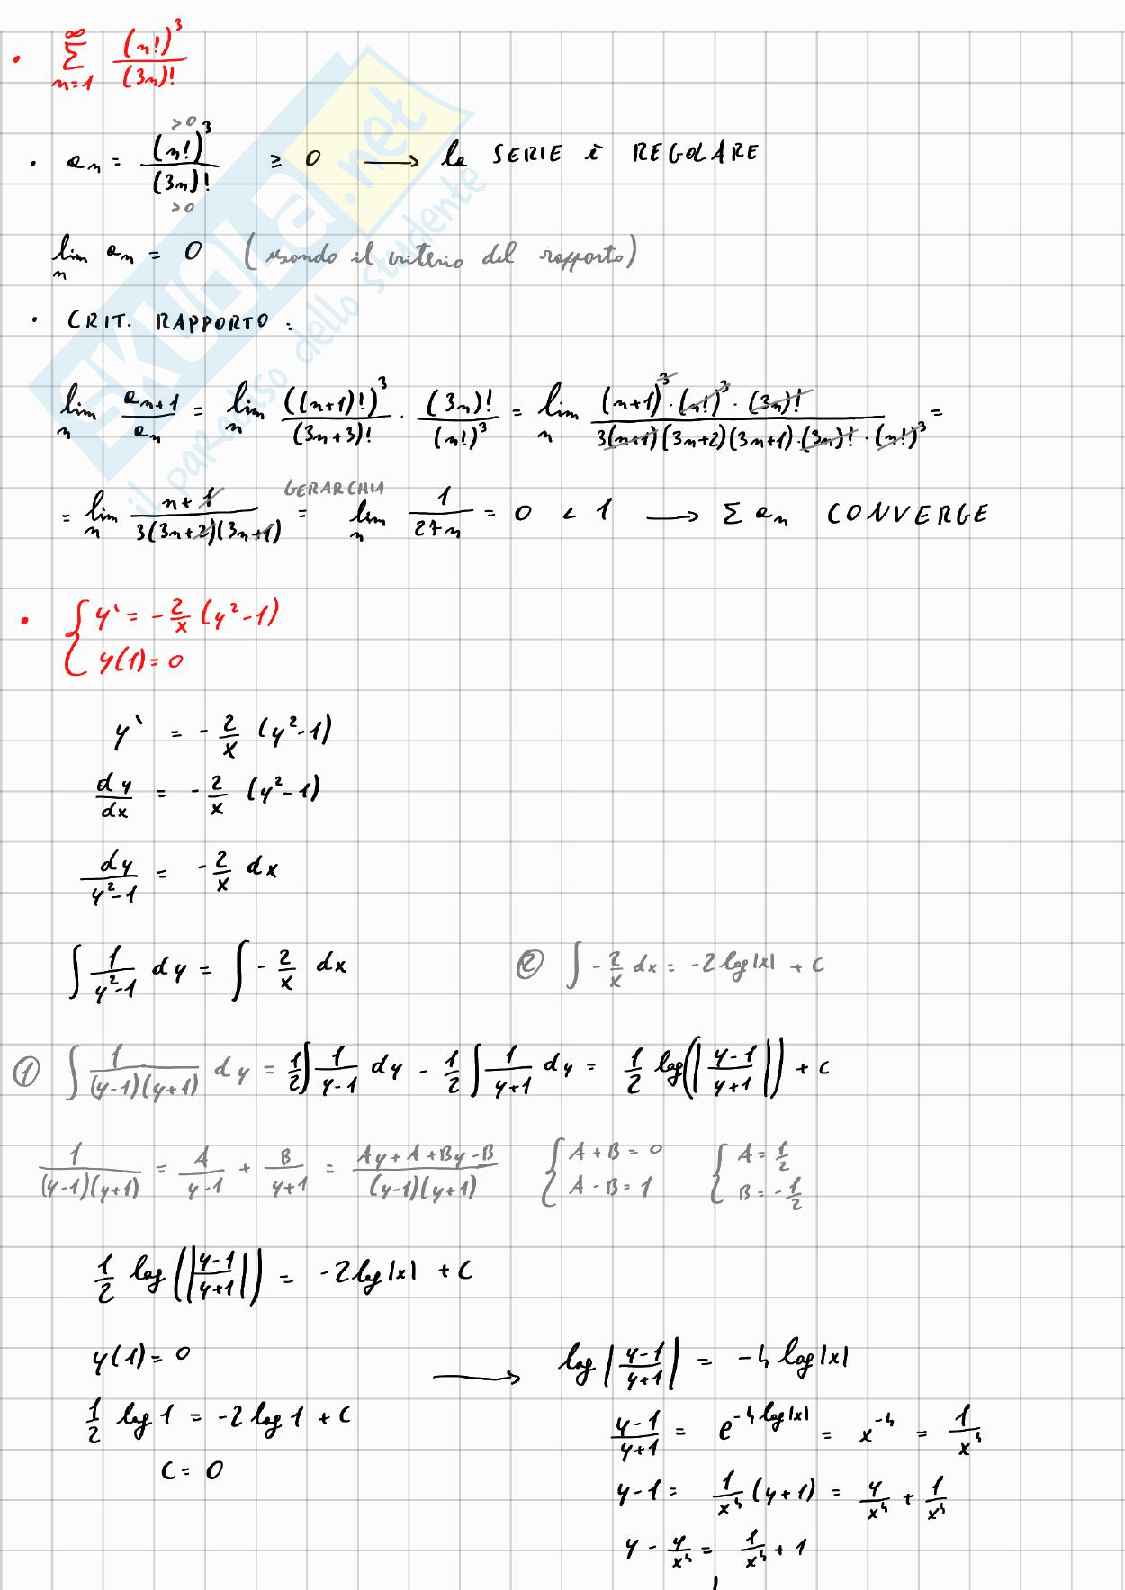 • ∑_{n=1}^{∞} (n!)^3 / (3n)!
• a_n = (n!)^3 / (3n)! ≥ 0 ⟶ la SERIE è REGOLARE
>0
>0
lim_n a_n = 0 (usando il criterio del rapporto)
• CRIT. RAPPORTO:
lim_n a_{n+1}/a_n = lim_n ((n+1)!)^3 / (3n+3)! · (3n)! / (n!)^3 = lim_n (n+1)^3 · (n!)^3 · (3n)! / 3(n+1)(3n+2)(3n+1)·(3n)! · (n!)^3 =
= lim_n n+1 / 3(3n+2)(3n+1) GERARCHIA = lim_n 1/27n = 0 < 1 ⟶ ∑ a_n CONVERGE
• { y' = -2/x (y^2-1)
y(1) = 0
y' = -2/x (y^2-1)
dy/dx = -2/x (y^2-1)
dy/(y^2-1) = -2/x dx
∫ 1/(y^2-1) dy = ∫ -2/x dx ② ∫ -2/x dx = -2log|x| + c
① ∫ 1/((y-1)(y+1)) dy = 1/2 ∫ 1/(y-1) dy - 1/2 ∫ 1/(y+1) dy = 1/2 log(|(y-1)/(y+1)|) + c
1/((y-1)(y+1)) = A/(y-1) + B/(y+1) = (Ay+A+By-B)/((y-1)(y+1)) { A+B=0 { A=1/2
A-B=1 B=-1/2
1/2 log(|(y-1)/(y+1)|) = -2log|x| + c
y(1) = 0
1/2 log1 = -2log1 + c
c = 0
⟶ log|(y-1)/(y+1)| = -4 log|x|
(y-1)/(y+1) = e^{-4log|x|} = x^{-4} = 1/x^4
y-1 = 1/x^4 (y+1) = y/x^4 + 1/x^4
y - y/x^4 = 1/x^4 + 1
SKUOLA.net
il paradiso dello studente